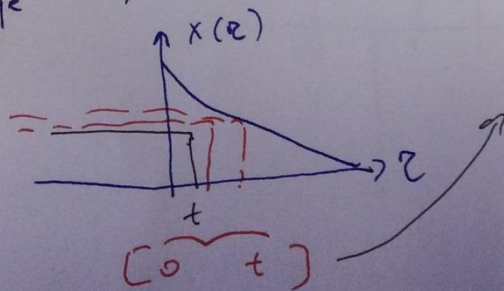 x(τ)
τ
t
[0 t]